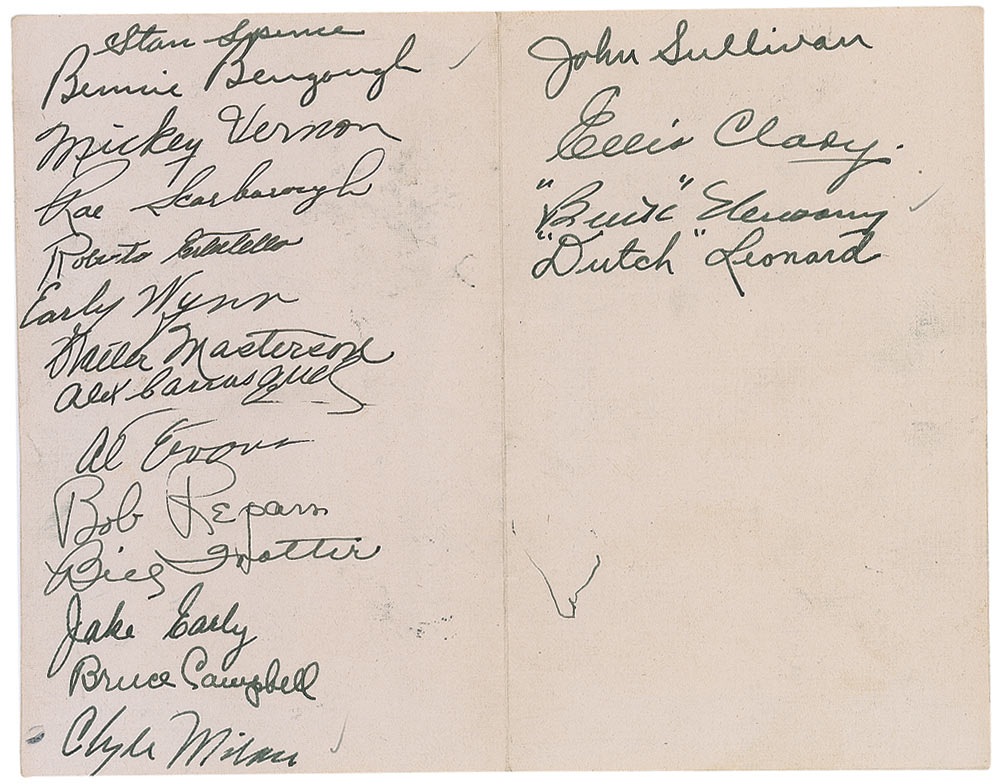 Stan Spence
Bennie Bengough
Mickey Vernon
Rae Scarborough
Roberto Estalella
Early Wynn
Walter Masterson
Alex Carrasquel
Al Evans
Bob Repass
Bill Trotter
Jake Early
Bruce Campbell
Clyde Milan
John Sullivan
Ellis Clary.
"Dutch" Leonard